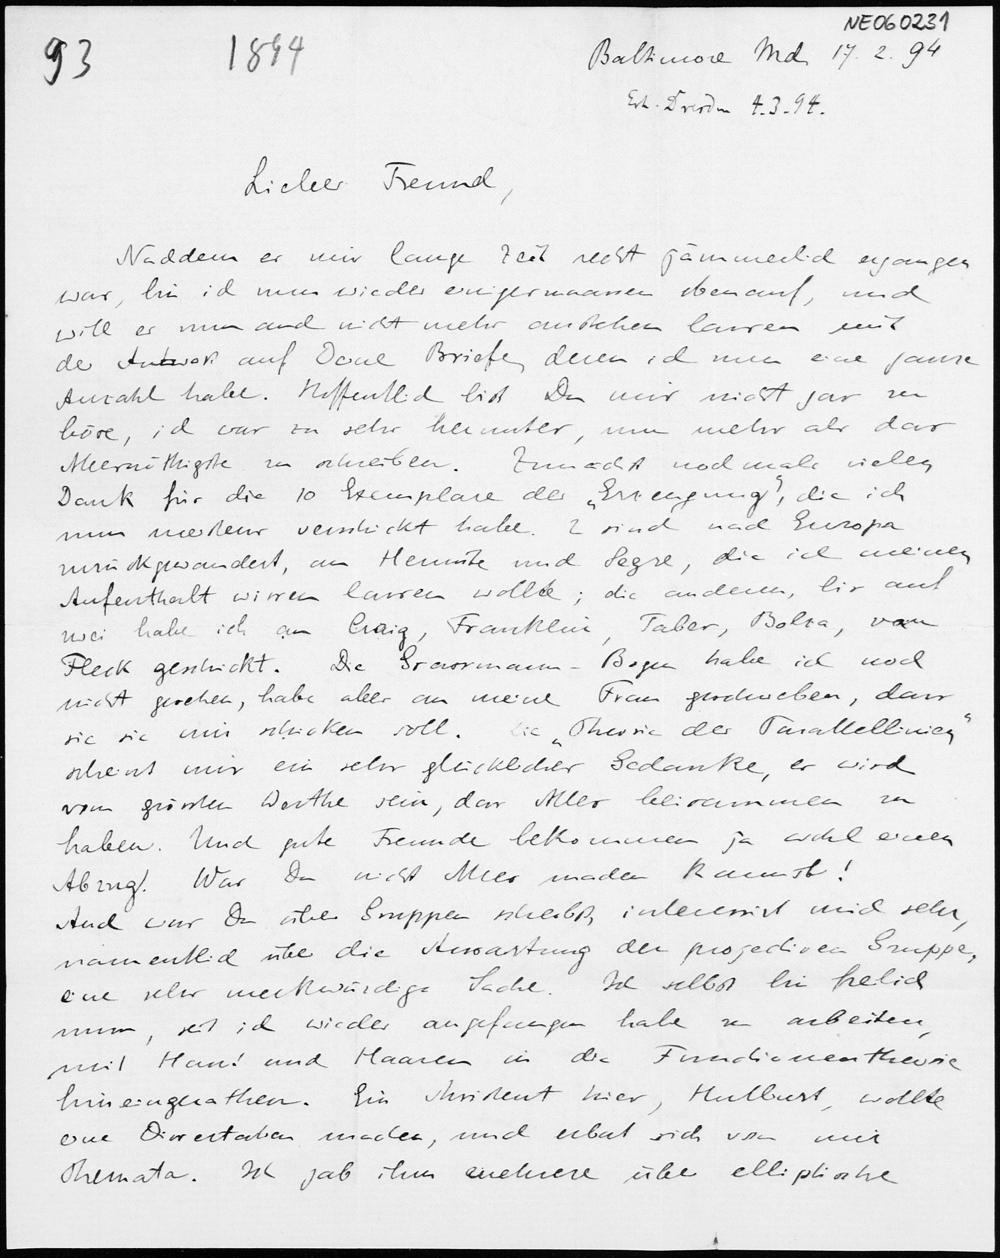 NE060231
93 1894 Baltimore Md. 17. 2. 94
Erh. Dresden 4.3.94.
Lieber Freund,
Nachdem es mir lange Zeit recht jämmerlich ergangen
war, bin ich nun wieder einigermaassen obenauf, und
will es nun auch nicht mehr anstehen lassen mit
der Antwort auf Deine Briefe, deren ich nun eine ganze
Anzahl habe. Hoffentlich bist Du mir nicht gar zu
böse, ich war zu sehr herunter, um mehr als das
Allernöthigste zu schreiben. Zunächst nochmals vielen
Dank für die 10 Exemplare der „Erzeugung", die ich
nun meistens verschickt habe. 2 sind nach Europa
zurückgewandert, an Hermite und Segre, die ich meinen
Aufenthalt wissen lassen wollte; die anderen, bis auf
zwei habe ich an Craig, Franklin, Taber, Bolza, van
Fleck geschickt. Die Grassmann-Bogen habe ich noch
nicht gesehen, habe aber an meine Frau geschrieben, dass
sie sie mir schicken soll. Die „Theorie der Parallellinien"
scheint mir ein sehr glücklicher Gedanke, es wird
vom grössten Werthe sein, das Alles beisammen zu
haben. Und gute Freunde bekommen ja wohl einen
Abzug. Was Du nicht Alles machen kannst!
Auch was Du über Gruppen schreibst, interessirt mich sehr,
namentlich über die Ausartung der projectiven Gruppe,
eine sehr merkwürdige Sache. Ich selbst bin freilich
nun, seit ich wieder angefangen habe zu arbeiten,
mit Haut und Haaren in die Functionentheorie
hineingerathen. Ein Student hier, Hulburt, wollte
eine Dissertation machen, und erbat sich von mir
Themata. Ich gab ihm mehrere über elliptische